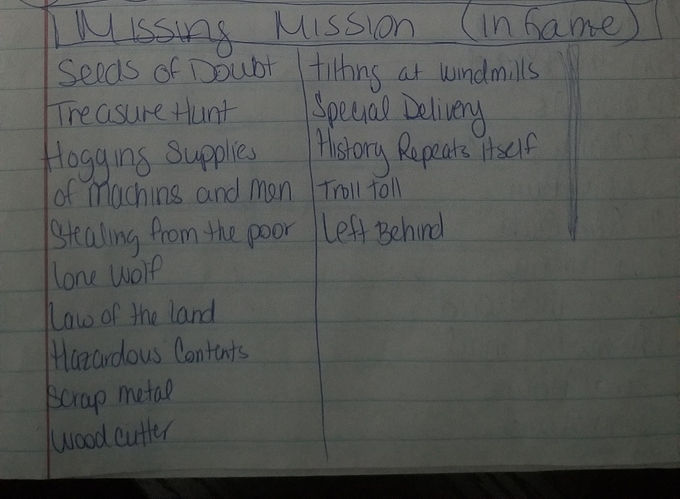 Missing Mission (in Game)
Seeds of Doubt
Treasure Hunt
Hogging Supplies
of Machins and Men
Stealing from the poor
Lone Wolf
Law of the land
Hazardous Contents
Scrap metal
Wood cutter
tilting at windmills
Special Delivery
History Repeats itself
Troll Toll
Left Behind